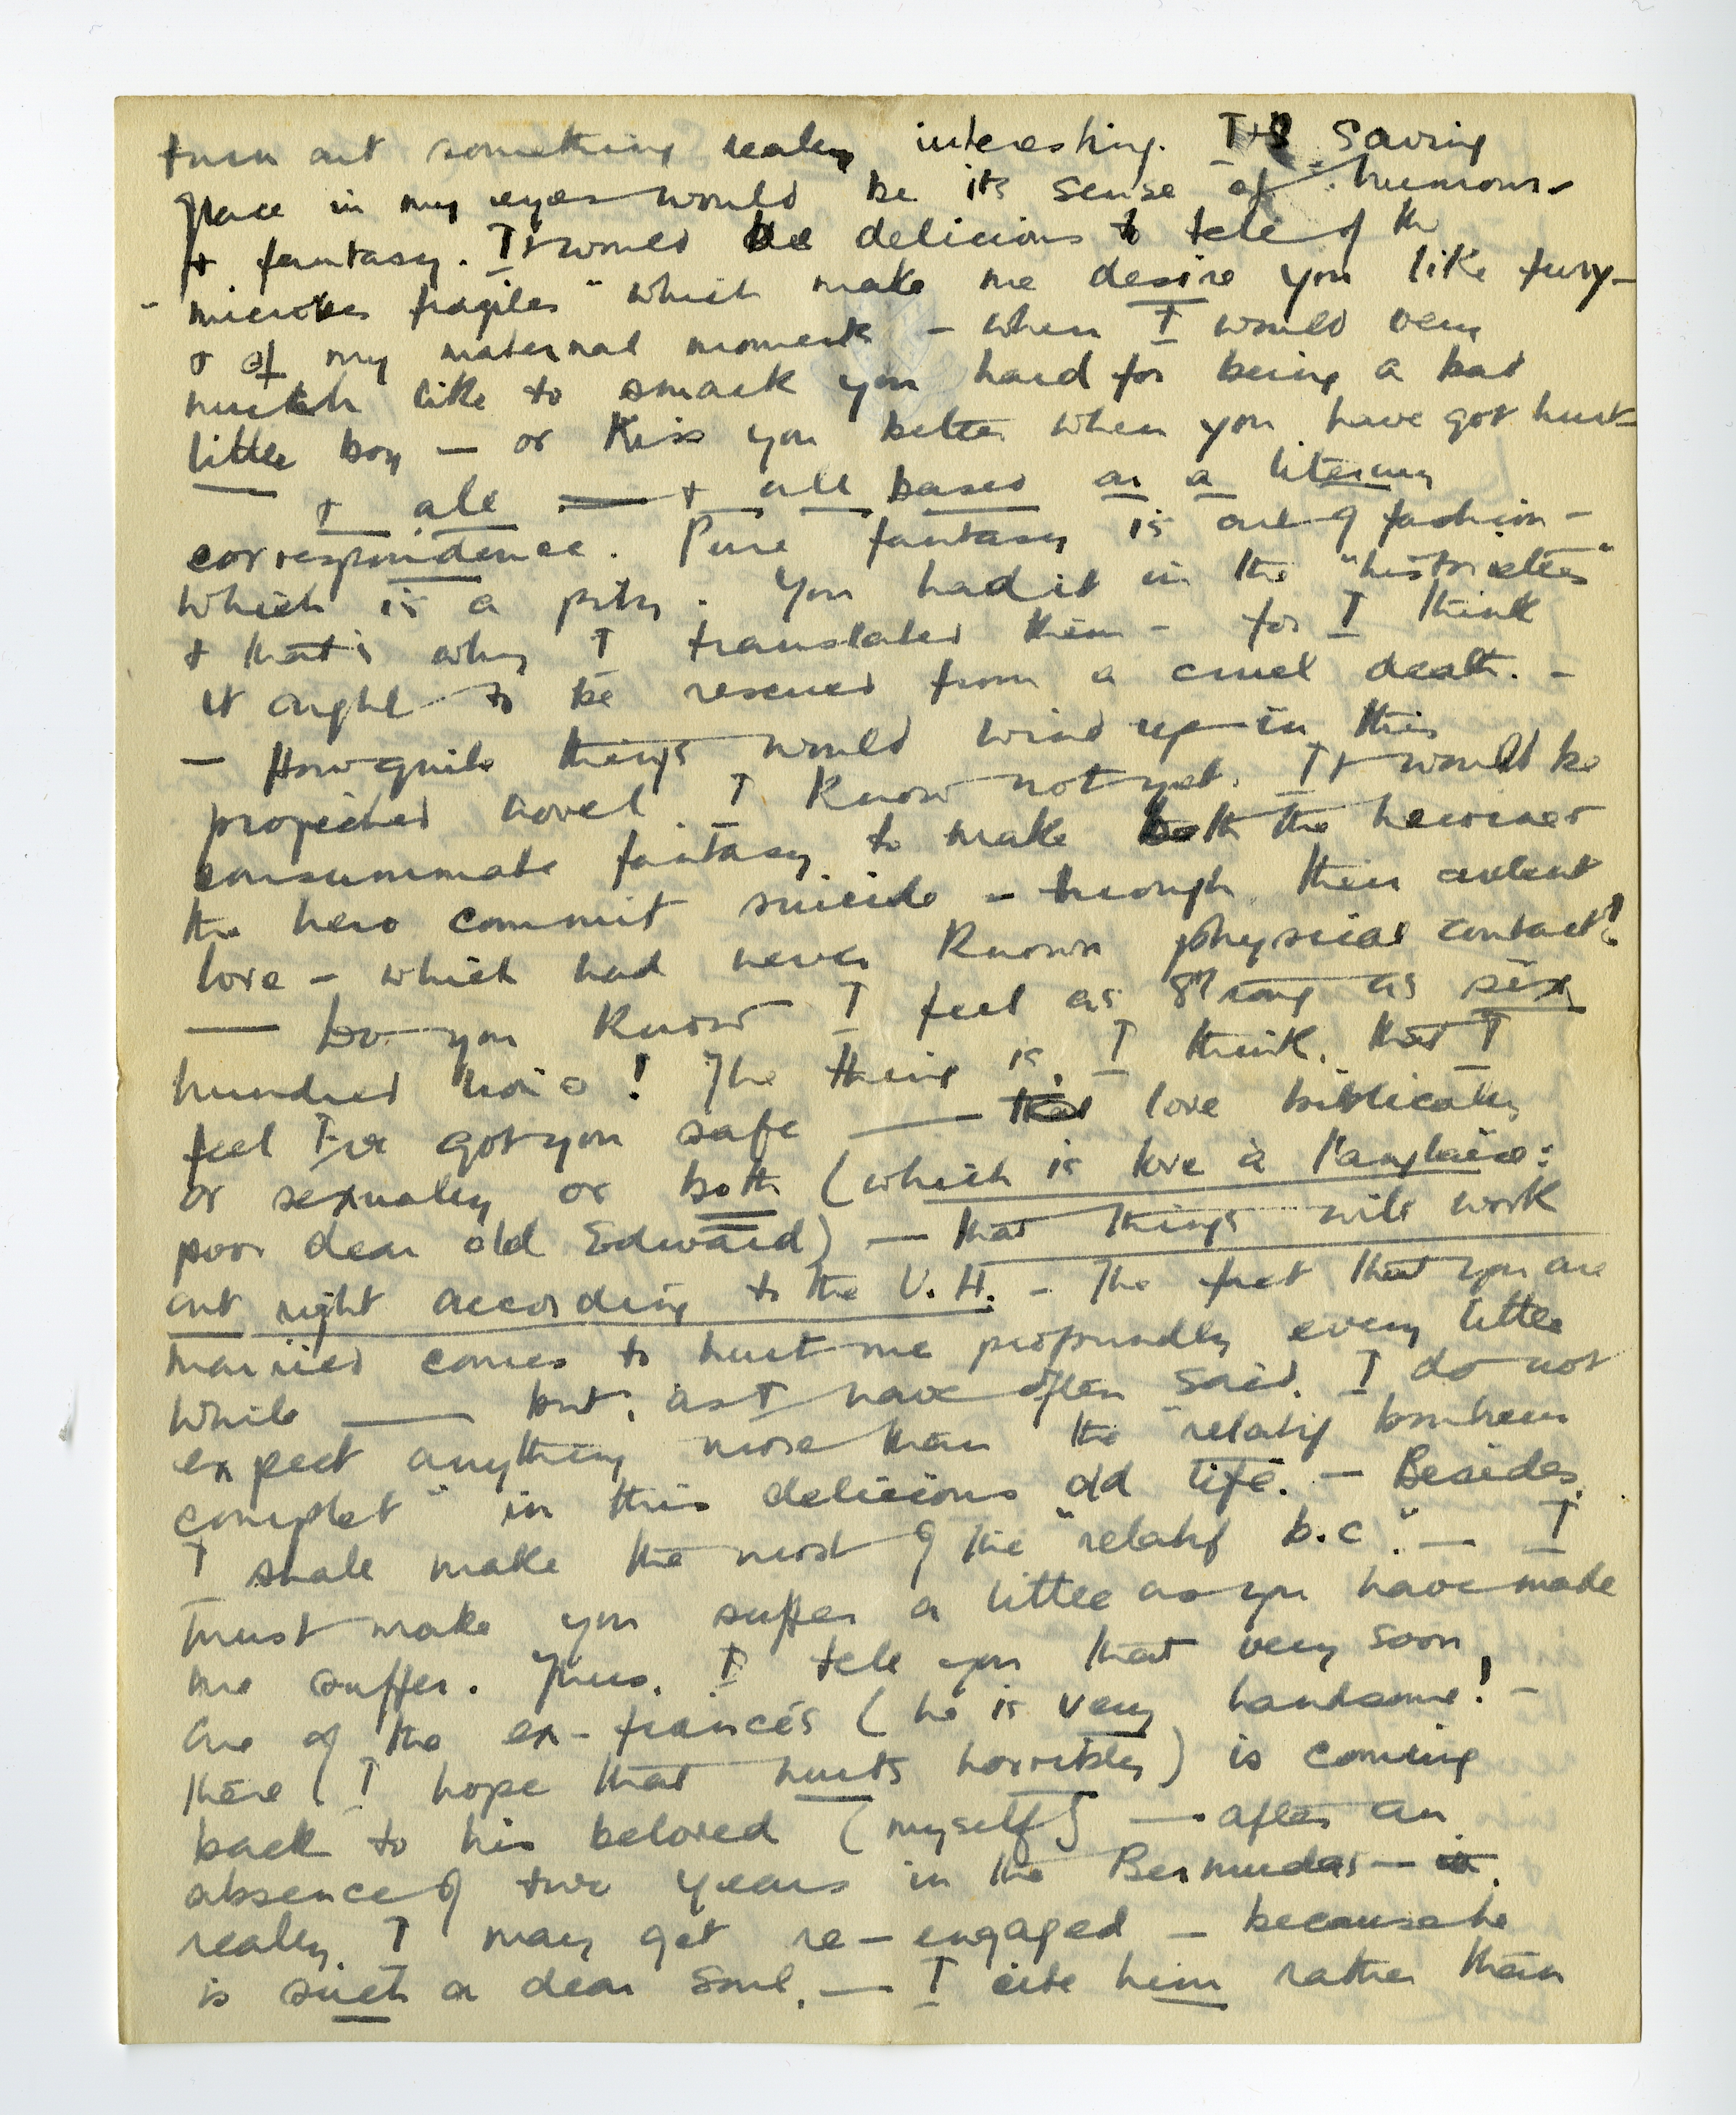 turn out something really interesting. Its saving
grace in my eyes would be its sense of humour
+ fantasy. It would be delicious to tell of the
"microbes fragiles" which make me desire you like fury –
& of my maternal moments – when I would very
much like to smack you hard for being a bad
little boy – or kiss you better when you have got hurt –
+ all + all based on a literary
correspondence. Pure fantasy is out of fashion –
which is a pity. You had it in the "historiettes"
+ that's why I translated them – for I think
it ought to be rescued from a cruel death. –
– How quite things would wind up in this
projected novel I know not yet. It would be
consummate fantasy to make both the heroine &
the hero commit suicide – through their ardent
love – which had never known physical contact!
— Do you know I feel as strong as six
hundred lions! The thing is, I think, that I
feel I've got you safe — love biblically
or sexually or both (which is love à l'anglaise:
poor dear old Edward) — that things will work
out right according to the V.H. – The fact that you are
married comes to hurt me profoundly every little
while — but, as I have often said, I do not
expect anything more than the "relatif bonheur
complet" in this delicious old life. – Besides,
I shall make the most of the "relatif b.c." — I
must make you suffer a little as you have made
me suffer. Thus, I tell you that very soon
one of the ex-fiancés (he is very handsome! –
there (I hope that hurts horribly) is coming
back to his beloved (myself) — after an
absence of two years in the Bermudas —
really I may get re-engaged – because he
is such a dear soul. — I cite him rather than